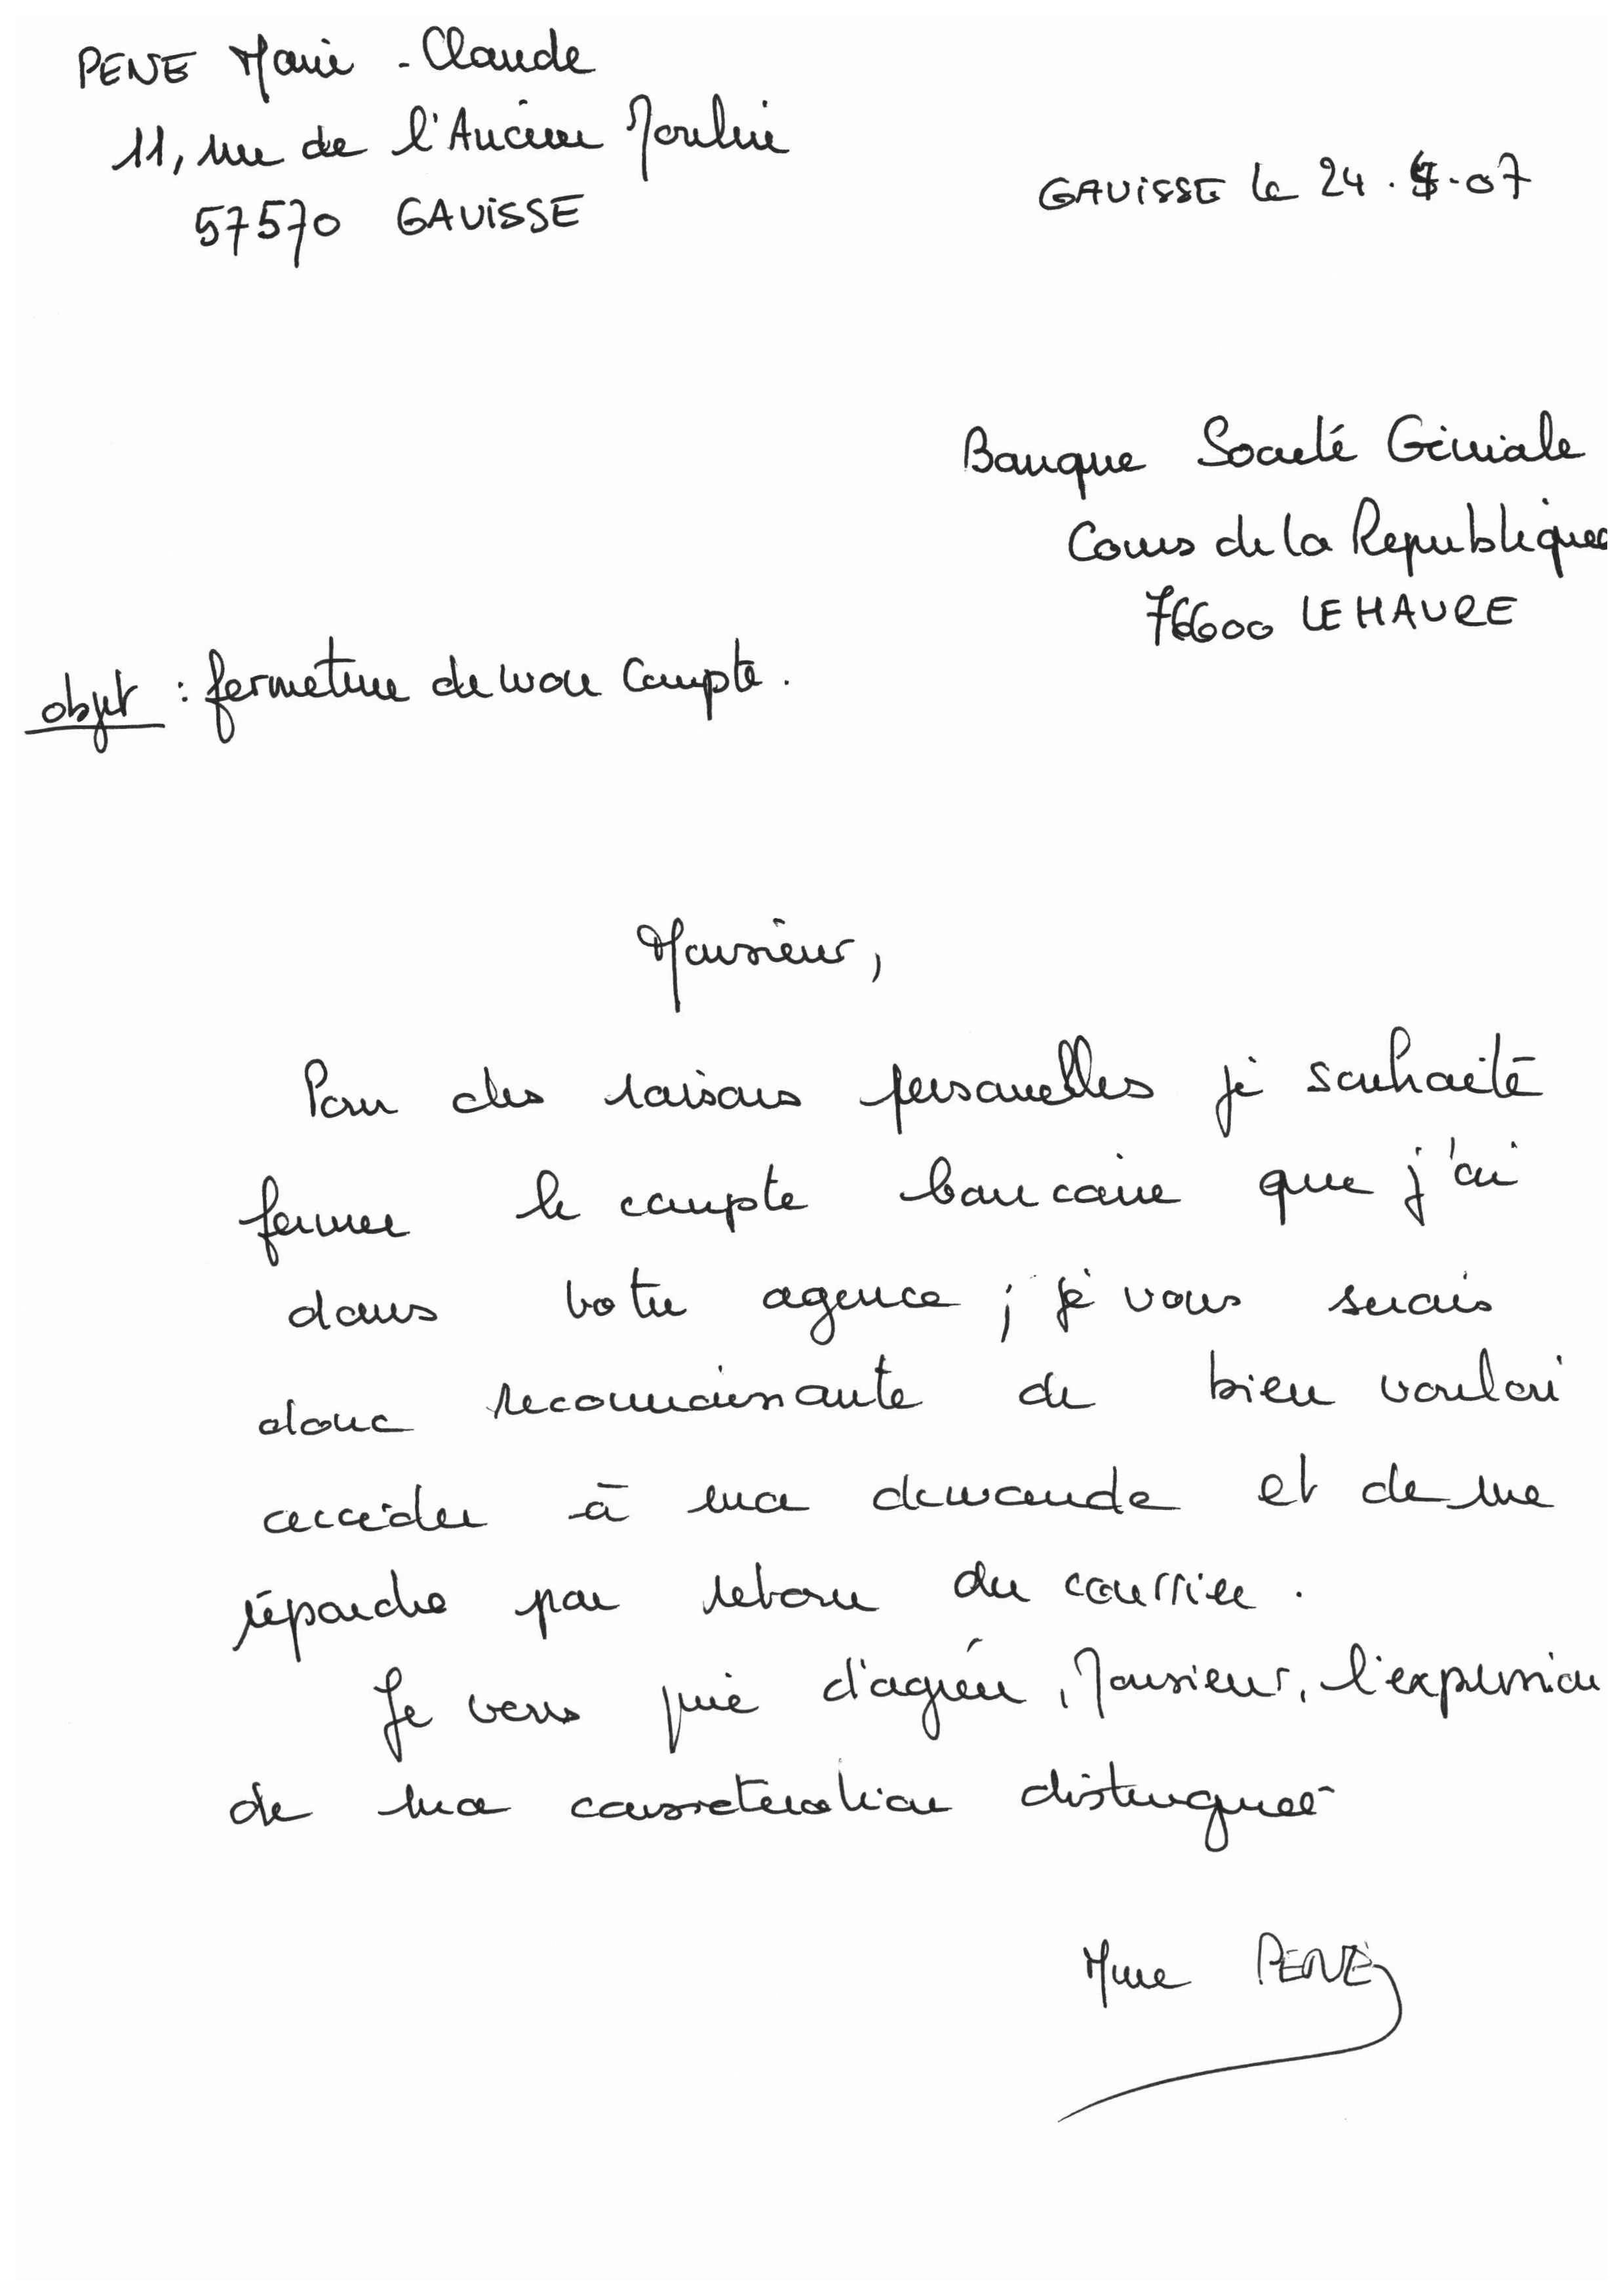 PENE Marie-Claude
11, rue de l'Ancien Moulin
57570 GAVISSE
GAVISSE le 24. -07
Banque Société Géniale
Cours de la Republique
76600 LE HAVRE
objet : fermeture de mon compte.
Monsieur,
Pour des raisons personnelles je souhaite
fermer le compte bancaire que j'ai
dans votre agence ; je vous serais
donc reconnaissante de bien vouloir
accéder à ma demande et de me
répondre par retour du courrier.
Je vous prie d'agréer, Monsieur, l'expression
de ma considération distinguée
Mme PENE